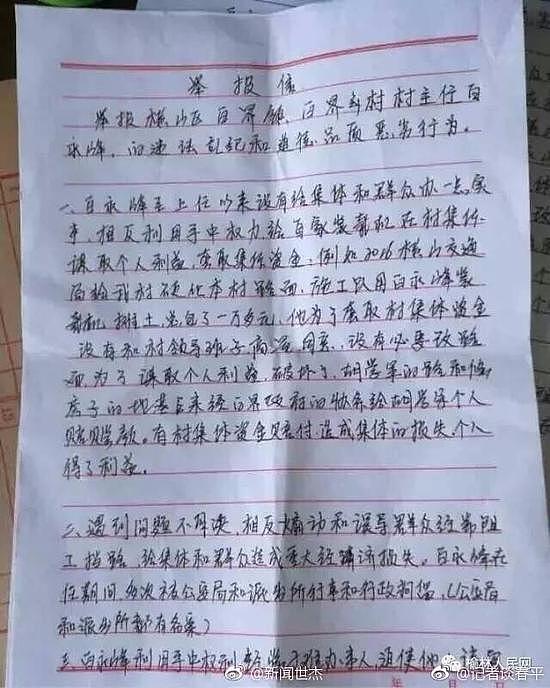 举报信
举报横山区白界镇、白界乡村村主任白
永峰、的违法乱纪和道德、品质恶劣行为。
一、白永峰至上任以来没有给集体和群众办一点实
事，相反利用手中权力给自家装载机在村集体
谋取个人利益，套取集体资金，例如2016横山交通
局给我村硬化本村路面，施工队用白永峰装
载机推土，总包了一万多元，他为了套取村集体资金
没有和村领导班子商议同意，没有必要改路
面，为了谋取个人利益，破坏了，胡学军的路和
房子的地基后来经白界政府的协条给胡学军个人
赔赔款。有村集体资金赔付，造成集体的损失，个人
得了利益。
二、遇到问题不解决，相反煽动和误导群众经常阻
工挡路，给集体和群众造成重大经济损失。白永峰在
任期间，多次被公安局和派出所行事和行政拘捕，（公安局
和派出所都有备案）
三、白永峰利用手中权利经常不给办事人，
年 月 日
榆林人民网
@新闻世杰
@记者谈春平